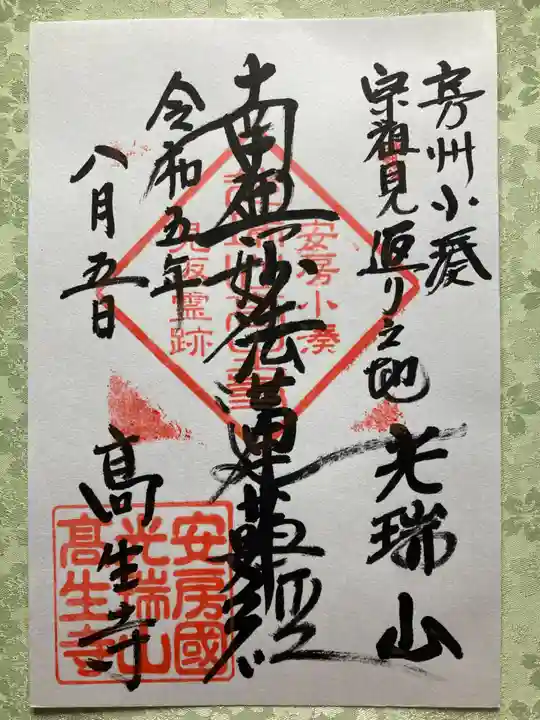 房州小湊
宗祖見返り之地 光瑞山
南無妙法蓮華経
令和五年
八月五日
高生寺
安房小湊
見返霊跡
安房國
光瑞山
高生寺